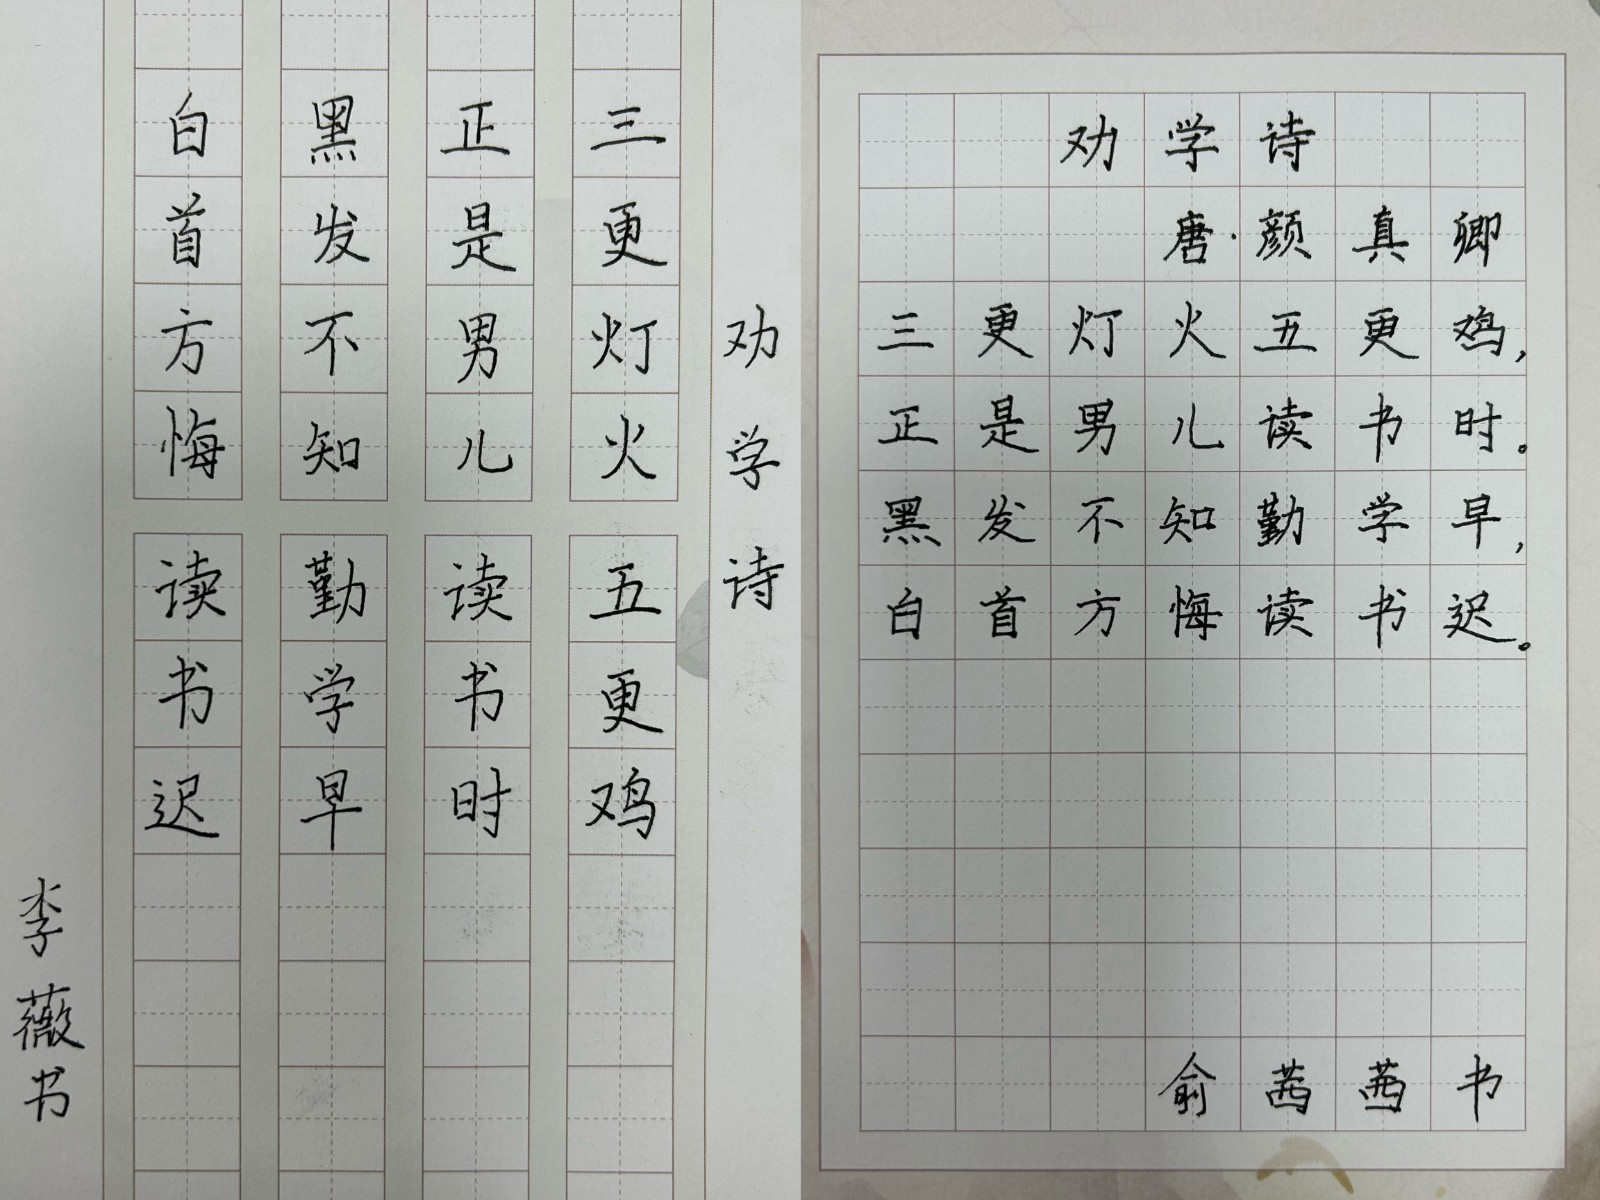 劝学诗
三更灯火五更鸡
正是男儿读书时
黑发不知勤学早
白首方悔读书迟
李薇书
劝学诗
唐·颜真卿
三更灯火五更鸡，
正是男儿读书时。
黑发不知勤学早，
白首方悔读书迟。
俞茜茜书